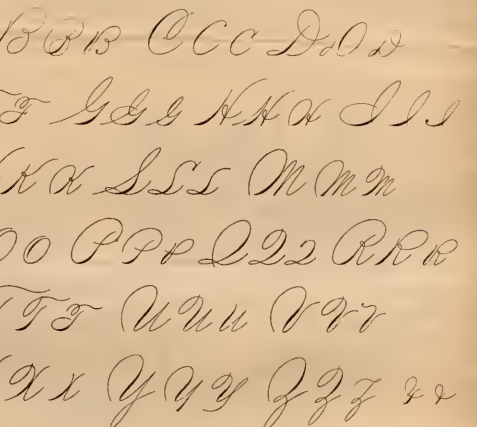 B B B C C C D D D
F G G G H H H I I I
K K L L L M M M
O O P P P Q Q Q R R R
T T T U U U V V V
X X Y Y Y Z Z Z & &